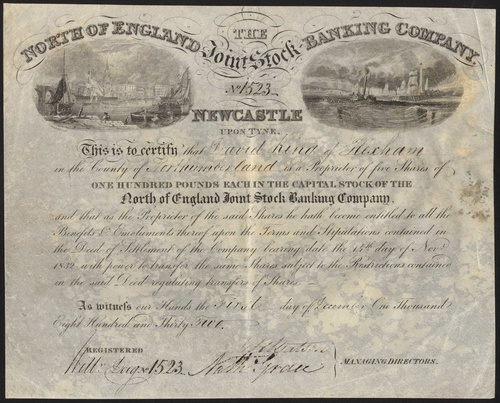 THE
NORTH OF ENGLAND Joint Stock BANKING COMPANY
No 1523
NEWCASTLE
UPON TYNE.
This is to certify that David King of Hexham
in the County of Northumberland is a Proprietor of five Shares of
ONE HUNDRED POUNDS EACH IN THE CAPITAL STOCK OF THE
North of England Joint Stock Banking Company,
and that as the Proprietor of the said Shares he hath become entitled to all the
Benefits & Emoluments thereof upon the Terms and Stipulations contained in
the Deed of Settlement of the Company bearing date the 15th day of Novr
1832, with power to transfer the same Shares, subject to the Restrictions contained
in the said Deed regulating transfers of Shares.
As witness our Hands the First day of December One Thousand
Eight Hundred and Thirty Two.
REGISTERED
1523
MANAGING DIRECTORS.